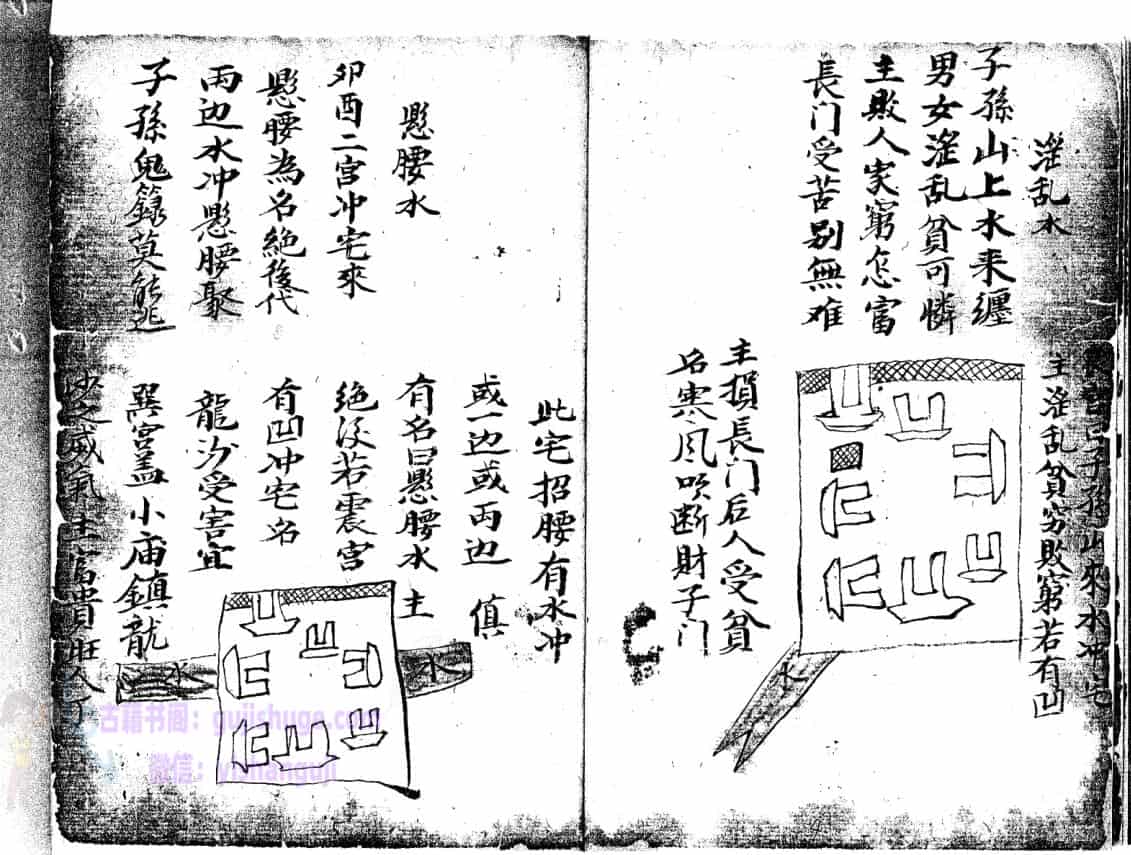 滛乱水
子孫山上水来纏
男女滛乱貧可憐
主敗人家窮怎富
長门受苦别無难
子孫山來水冲宅
主滛乱貧穷敗窮若有凹
水
主損長门后人受貧
名寒风吹断財子门
懸腰水
卯酉二宫冲宅來
懸腰為名絶後代
两边水冲懸腰聚
子孫鬼籙莫能逃
此宅招腰有水冲
或一边或両边 慎
有名曰懸腰水 主
绝後若震宫
有凹冲宅名
龍沙受害宜
巽宫盖小庙鎮龍
沙之威氣主富貴旺人丁
水
水
古籍书阁：gujishuge.com
微信：yishanguji